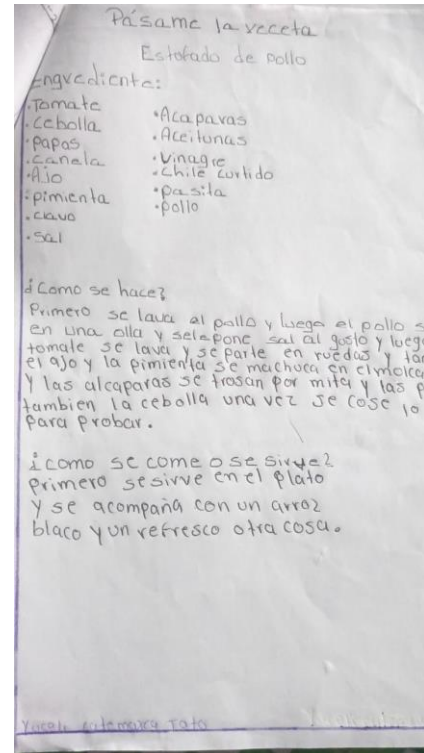 Pásame la receta
Estofado de pollo
Engrediente:
.Tomate
.cebolla
.papas
.canela
.Ajo
.pimienta
.clavo
.sal
.Acaparas
.Aceitunas
.Vinagre
.chile curtido
.pasita
.pollo
¿Como se hace?
Primero se lava el pollo y luego el pollo s
en una olla y sele pone sal al gusto y lueg
tomate se lava y se parte en ruedas y tan
el ajo y la pimienta se machuca en el molca
y las alcaparas se trosan por mita y las p
tambien la cebolla una vez se cose lo
para probar.
¿como se come o se sirve?
primero se sirve en el plato
y se acompaña con un arroz
blaco y un refresco otra cosa.